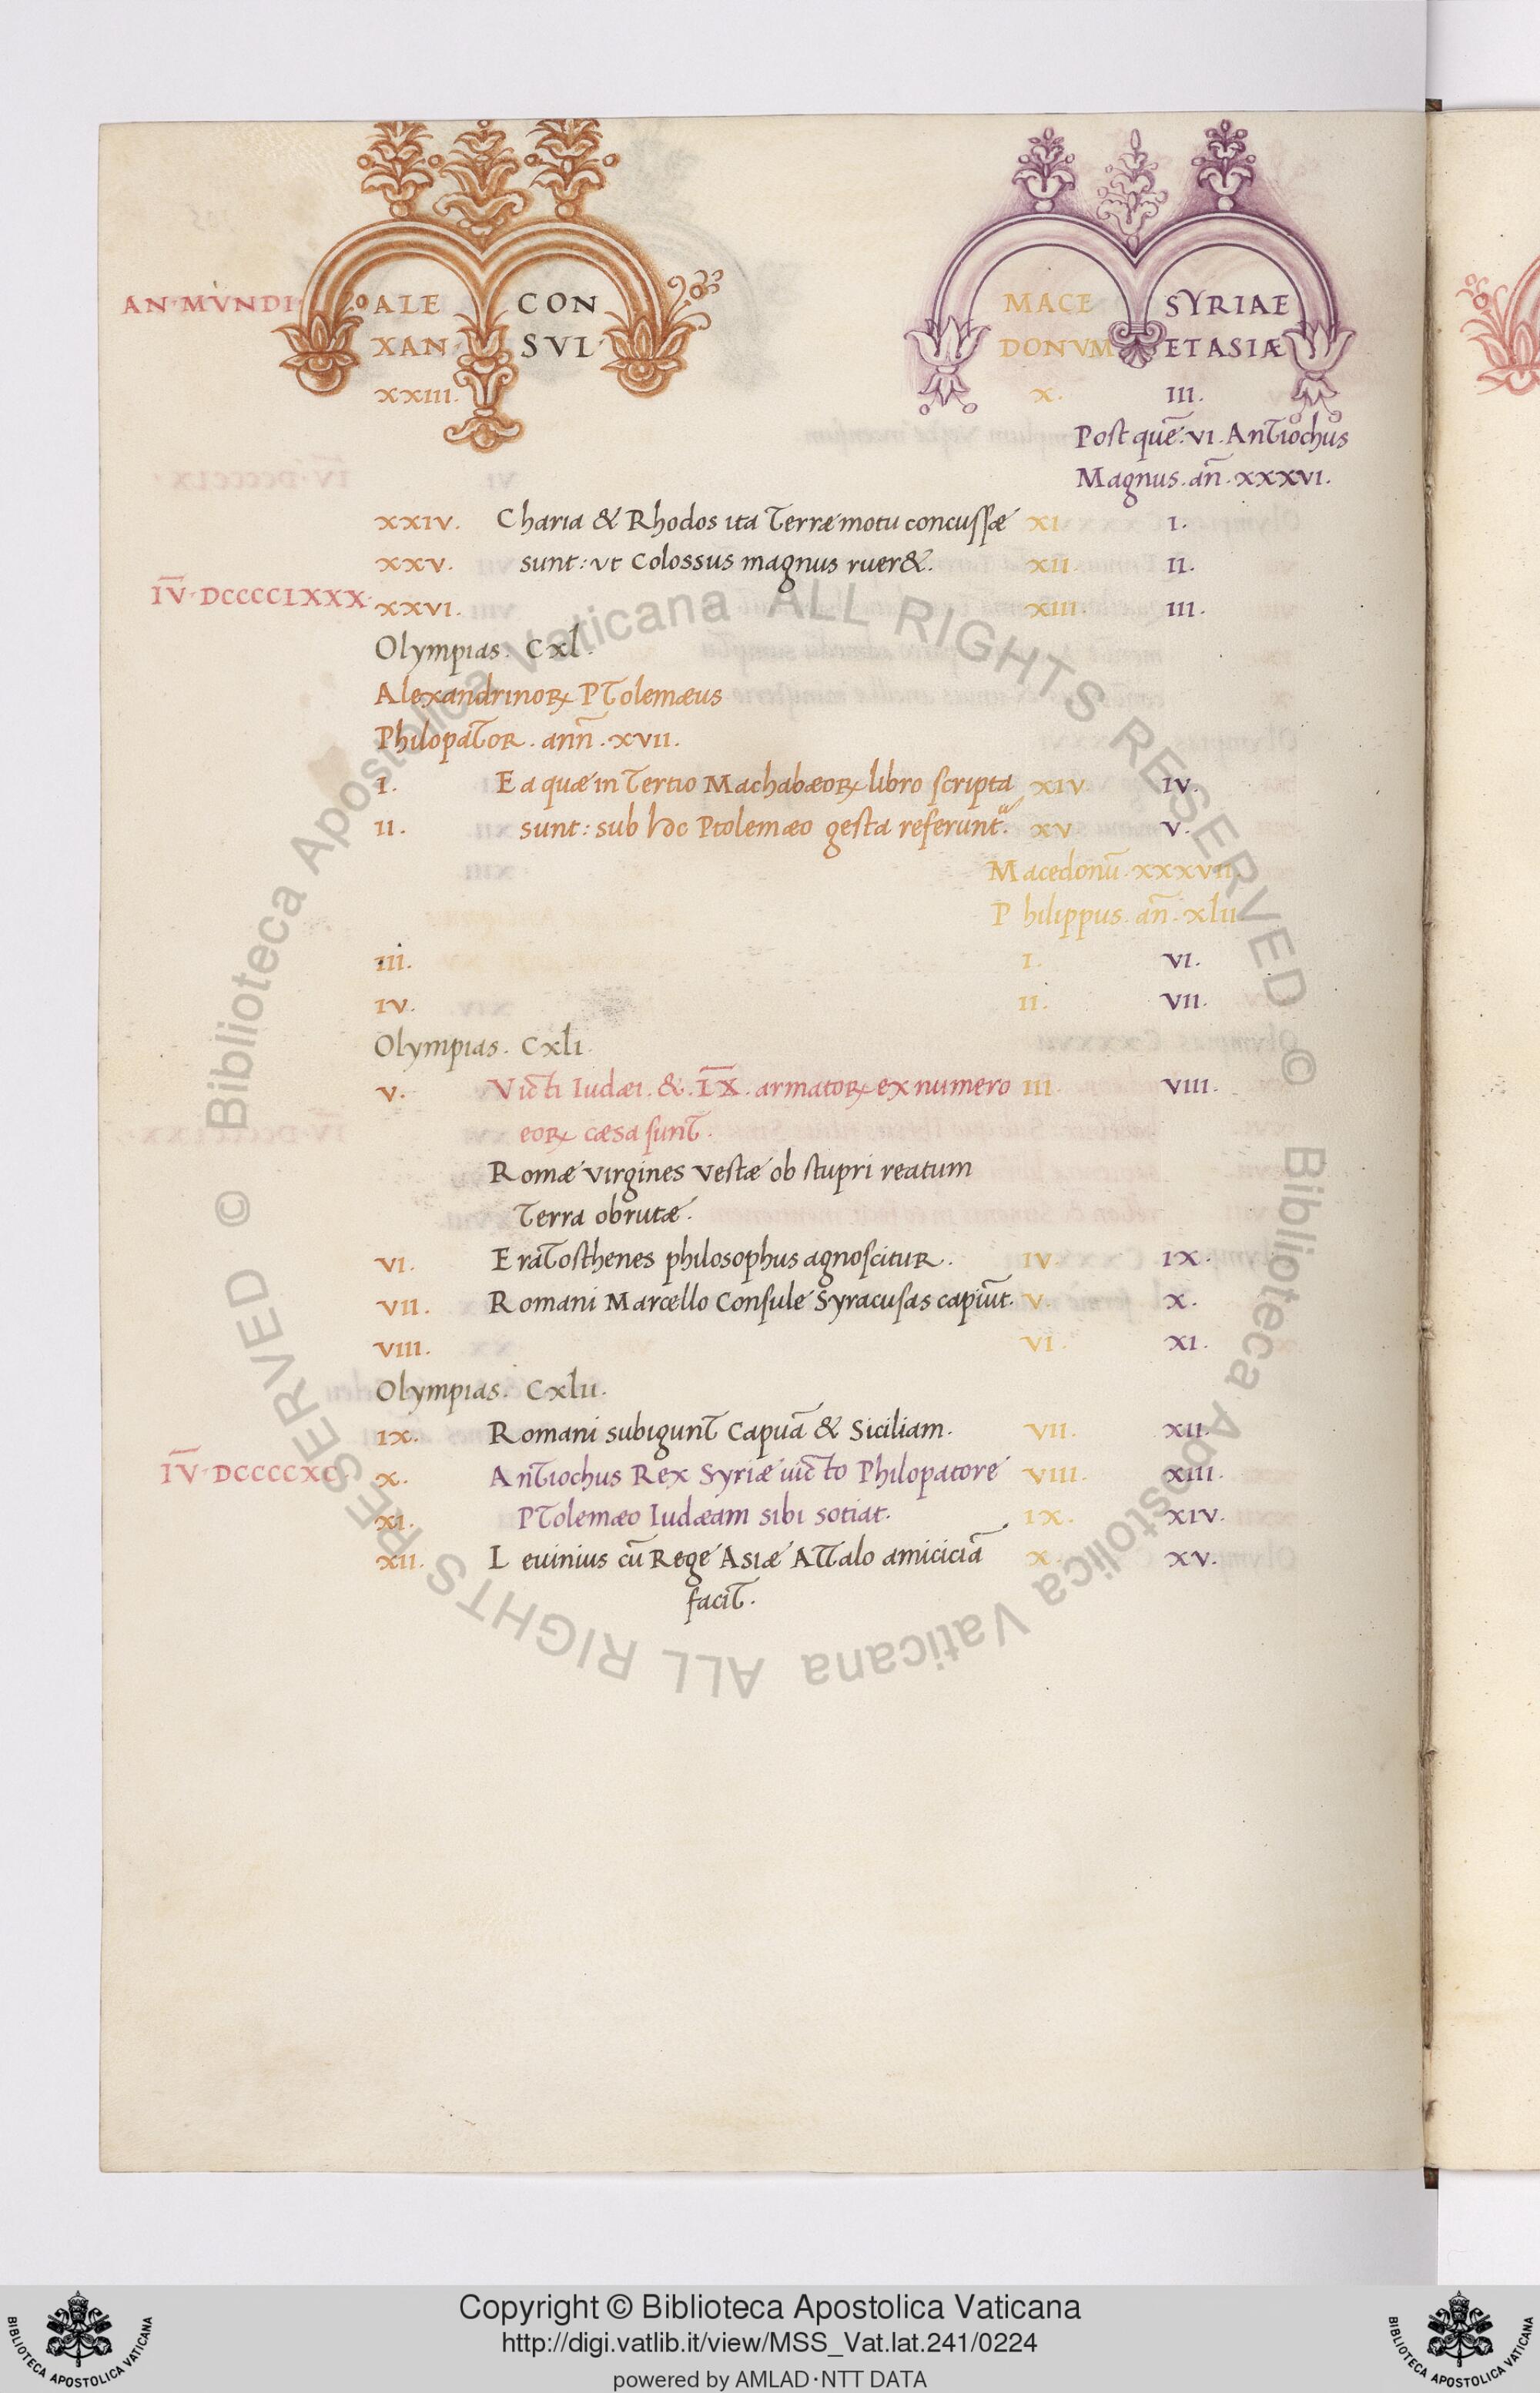 AN·MVNDI· ALE CON MACE SYRIAE
XAN SVL DONVM ET ASIÆ
XXIII. X. III.
Post quē. VI. Antiochus
Magnus. añ. XXXVI.
XXIV. Charia & Rhodos ita Terræ motu concussæ XI I.
XXV. sunt: vt Colossus magnus ruer&. XII. II.
I̅V̅·DCCCCLXXX· XXVI. XIII. III.
Olympias. Cxl.
Alexandrinoꝝ PTolemæus
PhilopaTOR. anñ. XVII.
I. Ea quæ in Tertio Machabæoꝝ libro scripta XIV IV.
II. sunt: sub hoc Ptolemæo gesta referunt. XV V.
Macedonū. XXXVII.
Philippus. añ. xlii
III. I. VI.
IV. II. VII.
Olympias. Cxli.
V. Victi Iudæi. &. I̅X̅. armatoꝝ ex numero III. VIII.
eoꝝ cæsa sunt.
Romæ virgines vestæ ob stupri reatum
Terra obrutæ.
VI. Eratosthenes philosophus agnoscitur. IV. IX.
VII. Romani Marcello Consule Syracusas capiūt. V. X.
VIII. VI. XI.
Olympias. Cxlii.
IX. Romani subigunt Capuā & Siciliam. VII. XII.
I̅V̅·DCCCCXC· X. Antiochus Rex Syriæ uicto Philopatore VIII. XIII.
XI. PTolemæo Iudæam sibi sotiat. IX. XIV.
XII. Leuinius cū Rege Asiæ ATTalo amiciciā X. XV.
facit.
© Biblioteca Apostolica Vaticana ALL RIGHTS RESERVED
© Biblioteca Apostolica Vaticana ALL RIGHTS RESERVED
Copyright © Biblioteca Apostolica Vaticana
http://digi.vatlib.it/view/MSS_Vat.lat.241/0224
powered by AMLAD·NTT DATA
BIBLIOTECA APOSTOLICA VATICANA
BIBLIOTECA APOSTOLICA VATICANA